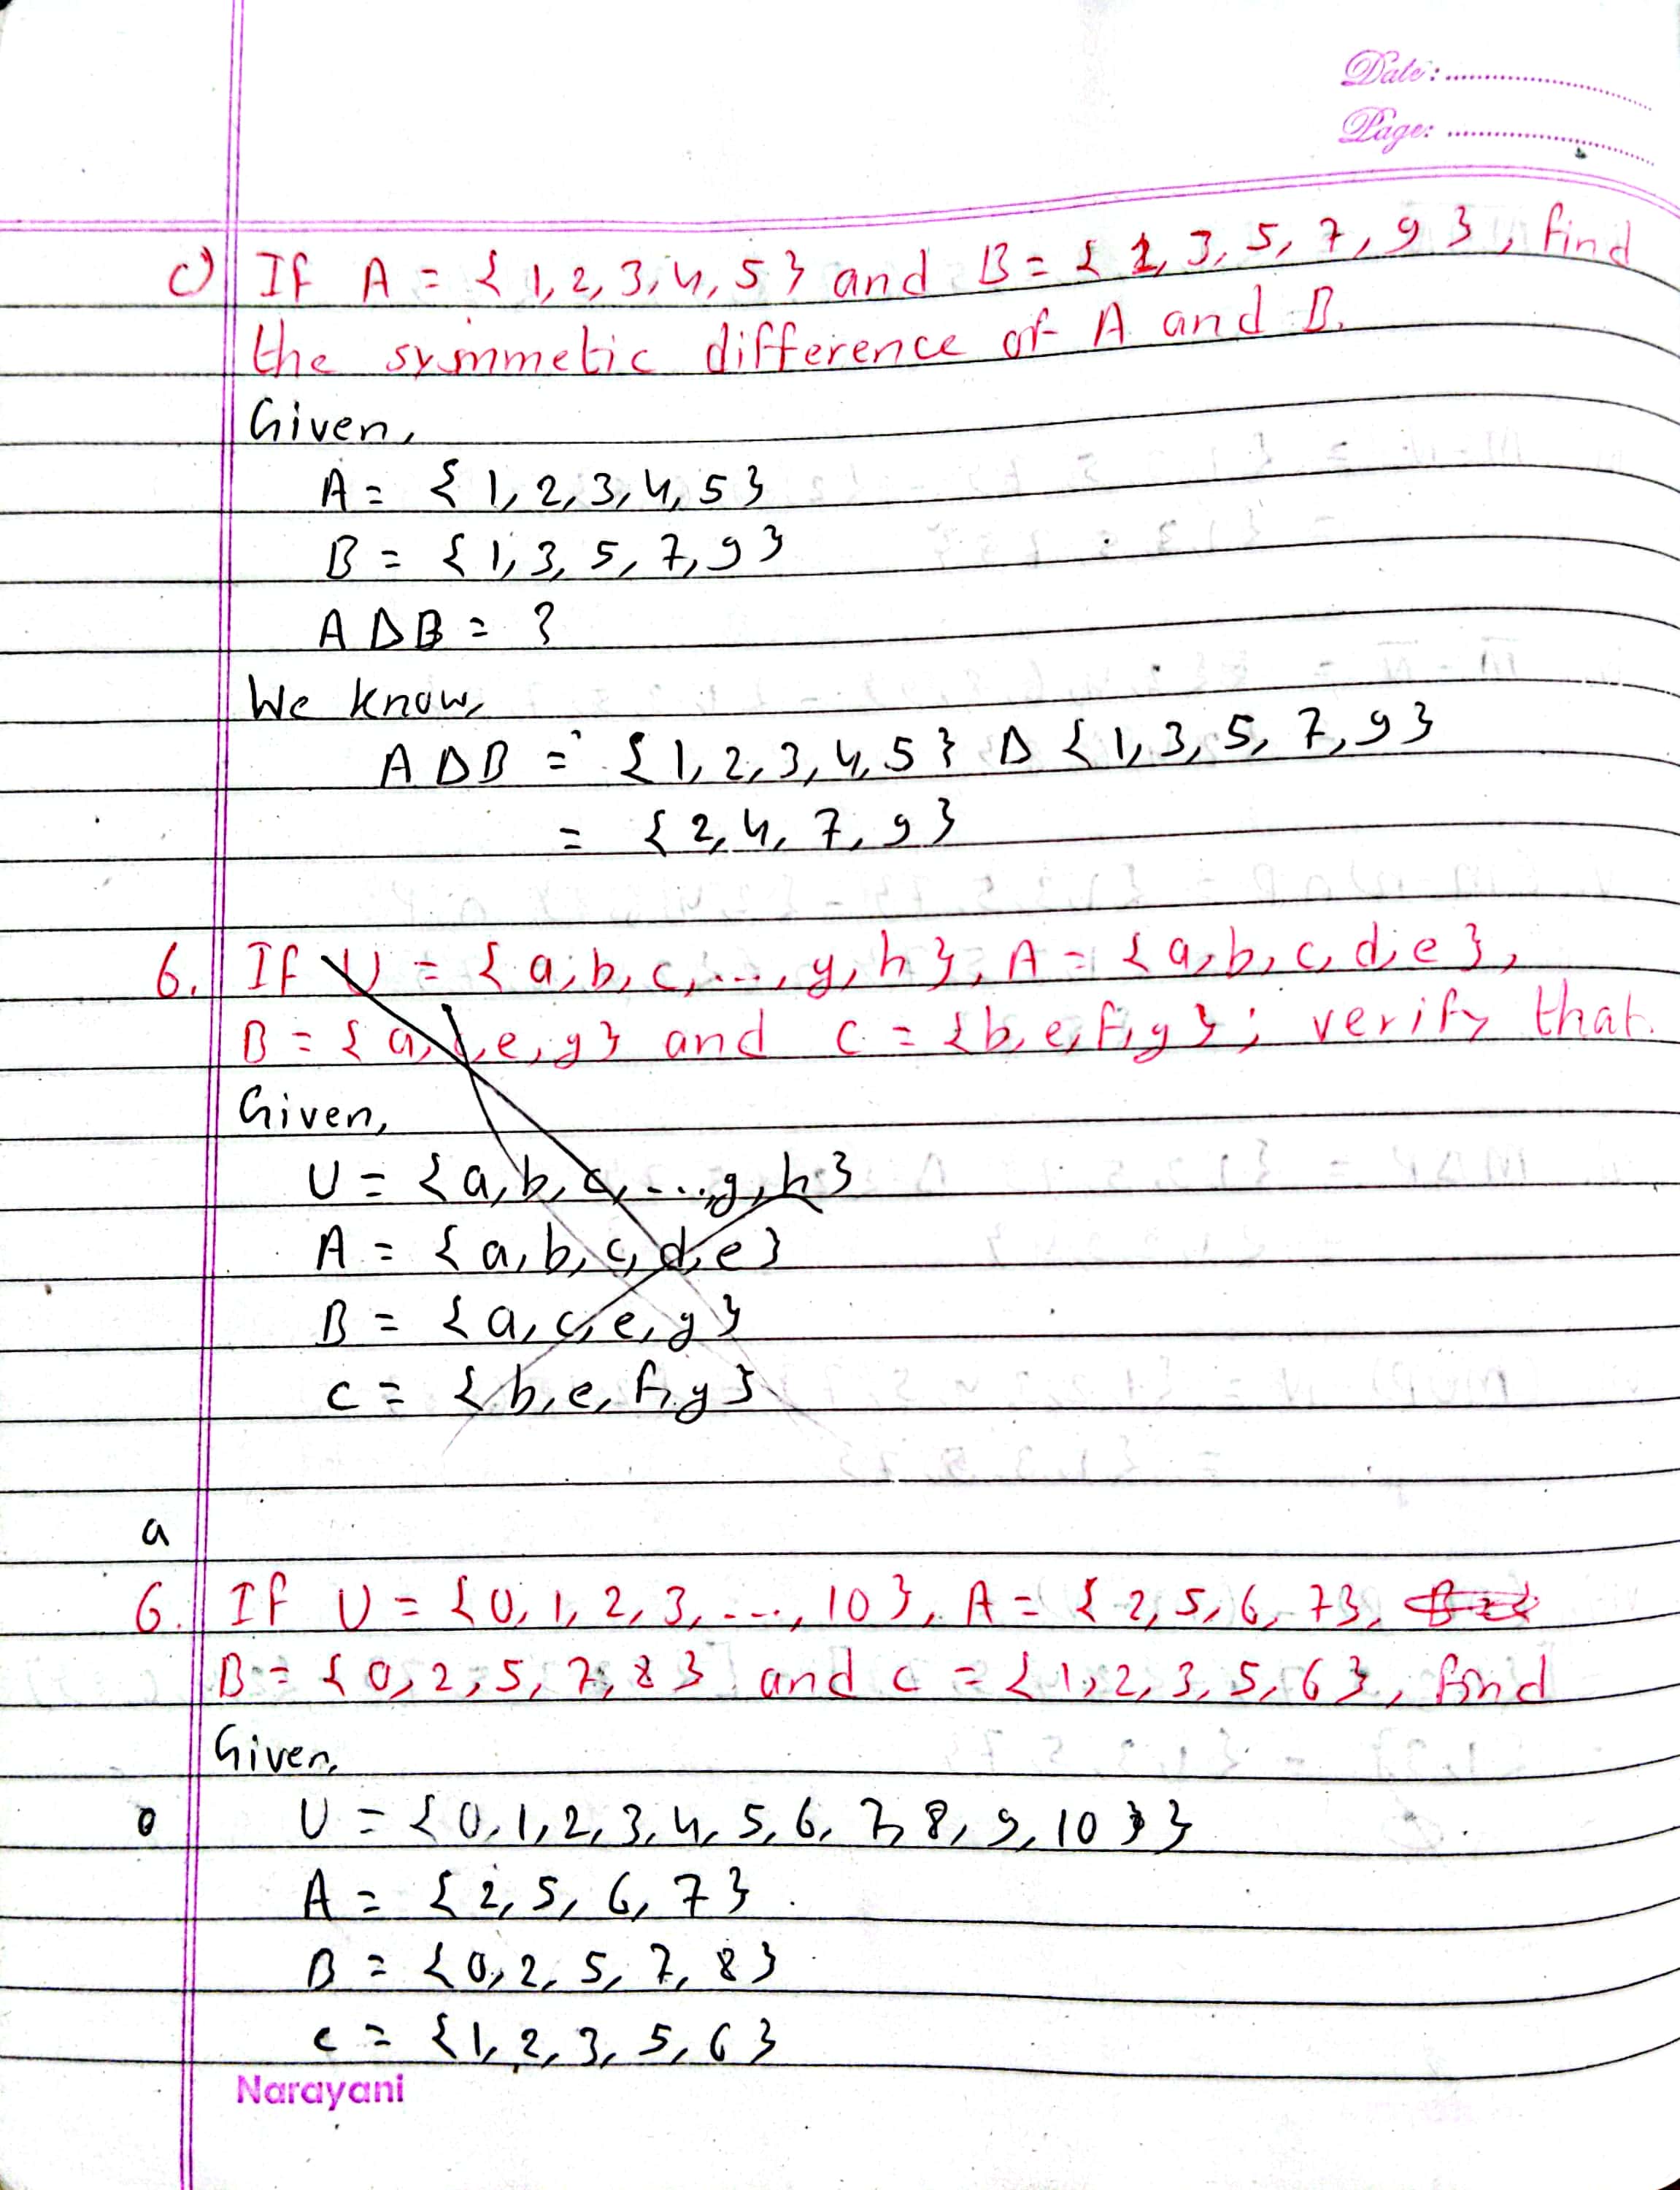 Date: ....................
Page: ....................
c) If A = { 1, 2, 3, 4, 5 } and B = { 1, 3, 5, 7, 9 }, find
the symmetic difference of A and B.
Given,
A = { 1, 2, 3, 4, 5 }
B = { 1, 3, 5, 7, 9 }
A Δ B = ?
We know,
A Δ B = { 1, 2, 3, 4, 5 } Δ { 1, 3, 5, 7, 9 }
= { 2, 4, 7, 9 }
6. If U = { a, b, c, ..., g, h }, A = { a, b, c, d, e },
B = { a, c, e, g } and C = { b, e, f, g } ; verify that.
Given,
U = { a, b, c, ..., g, h }
A = { a, b, c, d, e }
B = { a, c, e, g }
C = { b, e, f, g }
a
6. If U = { 0, 1, 2, 3, ..., 10 }, A = { 2, 5, 6, 7 },
B = { 0, 2, 5, 7, 8 } and C = { 1, 2, 3, 5, 6 }, find
Given,
U = { 0, 1, 2, 3, 4, 5, 6, 7, 8, 9, 10 }
A = { 2, 5, 6, 7 }
B = { 0, 2, 5, 7, 8 }
C = { 1, 2, 3, 5, 6 }
Narayani